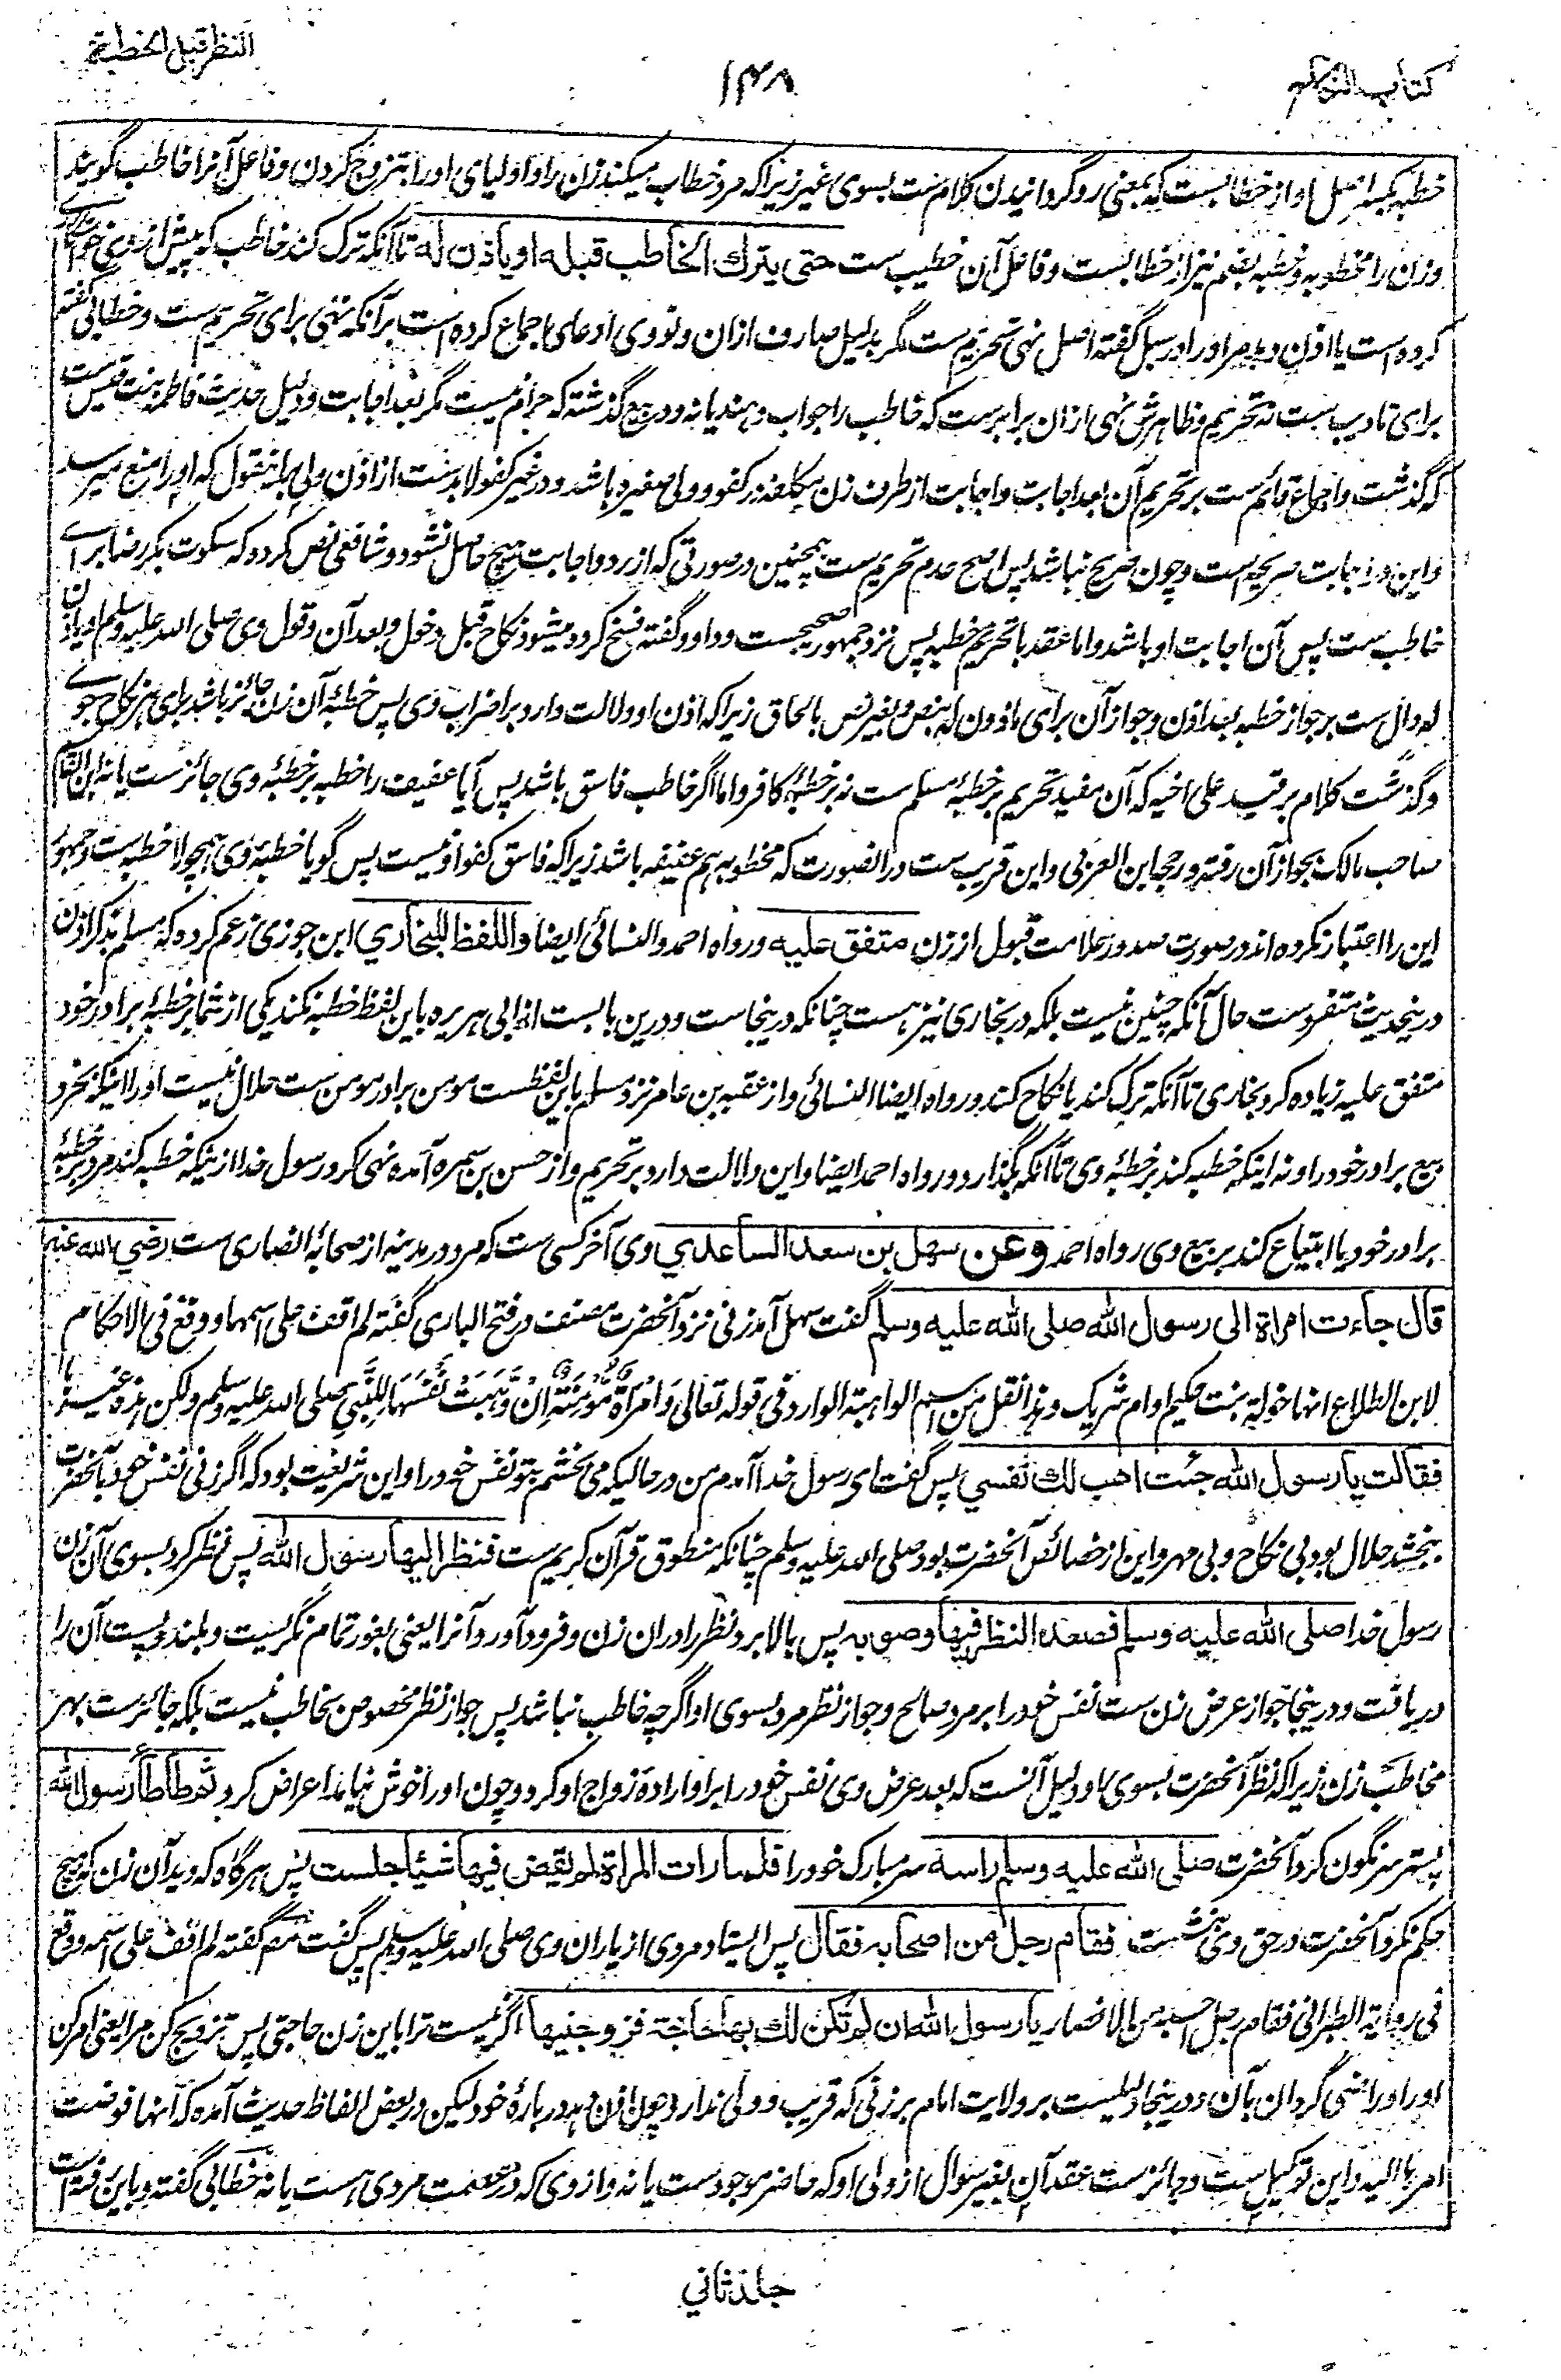 كتاب النكاح
۱۴۸
النظر قبل الخطبة
خطبه بکسر اصل او از خطابست که بمعنی رو گردانیدن کلام ست بسوی غیر زیرا که مرد خطاب میکند زن را و اولیای او را بتزوج کردن و فاعل آنرا خاطب گویند
وزن را مخطوبه و خطبه بضم نیز از خطابست و فاعل آن خطیب ست حتى يترك الخاطب قبله او يأذن له تا آنکه ترک کند خاطب که پیش از وی خواستگاری
کرده است یا اذن دهد مر او را در سبل گفته اصل نهی تحریم ست مگر بدلیل صارف ازان و نووی ادعای اجماع کرده است بر آنکه نهی برای تحریم ست و خطابی گفته
برای تادیب ست نه تحریم و ظاهرش نهی ازان برابرست که خاطب را جواب دهند یا نه و درجع گذشته که حرام نیست مگر بعد اجابت و دلیل حدیث فاطمه بنت قیس ست
که گذشت و اجماع قائم ست بر تحریم آن بعد اجابت و اجابت از طرف زن مکلفه در کفو و ولی صغیره باشد و در غیر کفو لابدست از اذن ولی بنا بقول که او را منع میرسد
و این در اجابت صریحه است و چون صریح نباشد پس اصح عدم تحریم ست همچنین در صورتی که از رد و اجابت هیچ حاصل نشود و شافعی نص کرده که سکوت بکر رضا برای
خاطب ست پس آن اجابت او باشد و اما عقد با تحریم خطبه پس نزد جمهور صحیحست و داود گفته فسخ کرده میشود نکاح قبل دخول و بعد آن و قول وی صلی الله علیه وسلم او یاذن
له دال ست بر جواز خطبه بعد اذن و جواز آن برای ماذون له بنص و بغیر نص بالحاق زیرا که اذن او دلالت دارد بر اضراب وی پس خطبهٔ آن زن جائز باشد برای هر نکاح جوی
و گذشت کلام بر قید علی اخیه که آن مفید تحریم بر خطبهٔ مسلم ست نه بر خطبهٔ کافر و اما اگر خاطب فاسق باشد پس آیا عفیف را خطبه بر خطبهٔ وی جائزست یا نه ابن القاسم
صاحب مالک بجواز آن رفته و رجحه ابن العربی و این قریب ست در الصورت که مخطوبه هم عفیفه باشد زیرا که فاسق کفو او نیست پس گویا خطبهٔ وی همچو لا خطبه ست و جمهور
این را اعتبار نکرده اند در صورت صدور علامت قبول از زن متفق عليه و رواه احمد و النسائی ایضا واللفظ للبخاري ابن جوزی زعم کرده که مسلم بذکر اذن
درینحدیث متفردست حال آنکه چنین نیست بلکه در بخاری نیز هست چنانکه درینجاست و درین بابست از ابی هریره باین لفظ خطبه نکند یکی از شما بر خطبهٔ برادر خود
متفق علیه زیاده کرد بخاری تا آنکه ترک کند یا نکاح کند و رواه ایضا النسائی و از عقبه بن عامر نزد مسلم باین لفظست مومن برادر مومن ست حلال نیست او را اینکه بخرد
بیع برادر خود را و نه اینکه خطبه کند بر خطبهٔ وی تا آنکه بگذارد و رواه احمد ایضا و این دلالت دارد بر تحریم و از حسن بن سمره آمده نهی کرد رسول خدا از اینکه خطبه کند مرد بر خطبهٔ
برادر خود یا ابتیاع کند بر بیع وی رواه احمد وعن سهل بن سعد الساعدي وی آخر کسی ست که مرد در مدینه از صحابهٔ انصاری ست رضي الله عنه
قال جاءت امراة الى رسول الله صلى الله عليه وسلم گفت سهل آمد زنی نزد آنحضرت مصنف در فتح الباری گفته لم اقف علی اسمها و وقع فی الاحکام
لابن الطلاع انها خولة بنت حکیم او ام شریک و هذا نقل من اسم الواهبة الوارد فی قوله تعالی وَامْرَأَةً مُّؤْمِنَةً اِنْ وَّهَبَتْ نَفْسَهَا لِلنَّبِيِّ صلی الله علیه وسلم ولکن هذه غیرها
فقالت يا رسول الله جئت اهب لك نفسي پس گفت ای رسول خدا آمدم من در حالیکه می بخشم بتو نفس خود را و این شریعت بود که اگر زنی نفس خود بآنحضرت
ببخشد حلال بود بی نکاح و بی مهر و این از خصائص آنحضرت بود صلی الله علیه وسلم چنانکه منطوق قرآن کریم ست فنظر اليها رسول الله پس نظر کرد بسوی آن زن
رسول خدا صلى الله عليه وسلم فصعد النظر فيها وصوبه پس بالا برد نظر را در ان زن و فرود آورد آنرا یعنی بغور تمام نگریست و بلند و پست آن را
دریافت و درینجا جواز عرض زن ست نفس خود را بر مرد صالح و جواز نظر مرد بسوی او اگرچه خاطب نباشد پس جواز نظر مخصوص بخاطب نیست بلکه جائزست بهر
مخاطب زن زیرا که نظر آنحضرت بسوی او دلیل آنست که بعد عرض وی نفس خود را بر او اراده زواج او کرد و چون او را خوش نیامد اعراض کرد ثم طأطأ رسول الله
پستر سرنگون کرد آنحضرت صلى الله عليه وسلم راسه سر مبارک خود را فلما رات المراة انه لم يقض فيها شيئا جلست پس هرگاه که دید آن زن که هیچ
حکم نکرد آنحضرت در حق وی نشست فقام رجل من اصحابه فقال پس ایستاد مردی از یاران وی صلی الله علیه وسلم پس گفت مصـ گفته لم اقف علی اسمه و وقع
فی روایة الطبرانی فقام رجل احسبه من الانصار يا رسول الله ان لم تكن لك بها حاجة فزوجنيها اگر نیست ترا باین زن حاجتی پس تزویج کن مرا یعنی امر کن
او را و راضی گردان بآن و درینجا دلیلست بر ولایت امام بر زنی که قریب و ولی ندارد چون اذن دهد در بارهٔ خود لیکن در بعض الفاظ حدیث آمده که انها فوضت
امرها الیه و این توکیل ست و جائز ست عقد آن بغیر سوال از ولی او که حاضر موجودست یا نه و از وی که در عصمت مردی هست یا نه خطابی گفته و باین رفته است
جلد ثاني